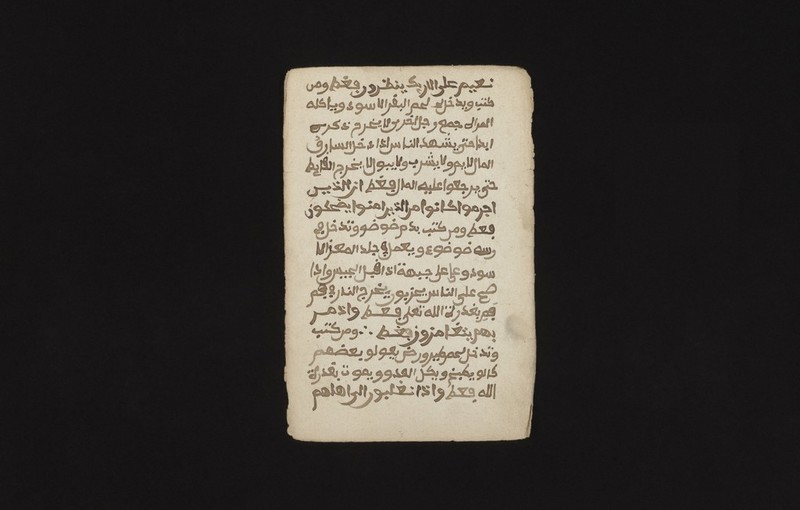 نعيم على الاريك ينظرور فقط ومن
كتب ويدخل لحم البقر الاسود وياكله
المراة جمع رجل اخرى لا يخرج ذكره
ابدا حتى يشهد الناس اذا دخل السارق
المال لا ينم ولا يشرب ولا يبول لا يخرج الغايط
حتى يرجعوا عليه المال فقط ان الذين
اجرموا كانوا من الذين امنوا يضحكون
فقط ومن كتب بدم ضوضو وتدخل في
رسه ضوضوع ويعمل في جلد المعز الا
سود وعلى جبهة اذا اقبل الجيش واذا
على الناس يخرج النار في فم
فم بقدرة الله تعلى فقط واذ مر
بهم يتغامزون فقط ومن كتب
وتدخل يقولو بعضهم
كانو ويكل العدو ويموت بقدرة
الله فقط واذا نقلبور الى اهلهم